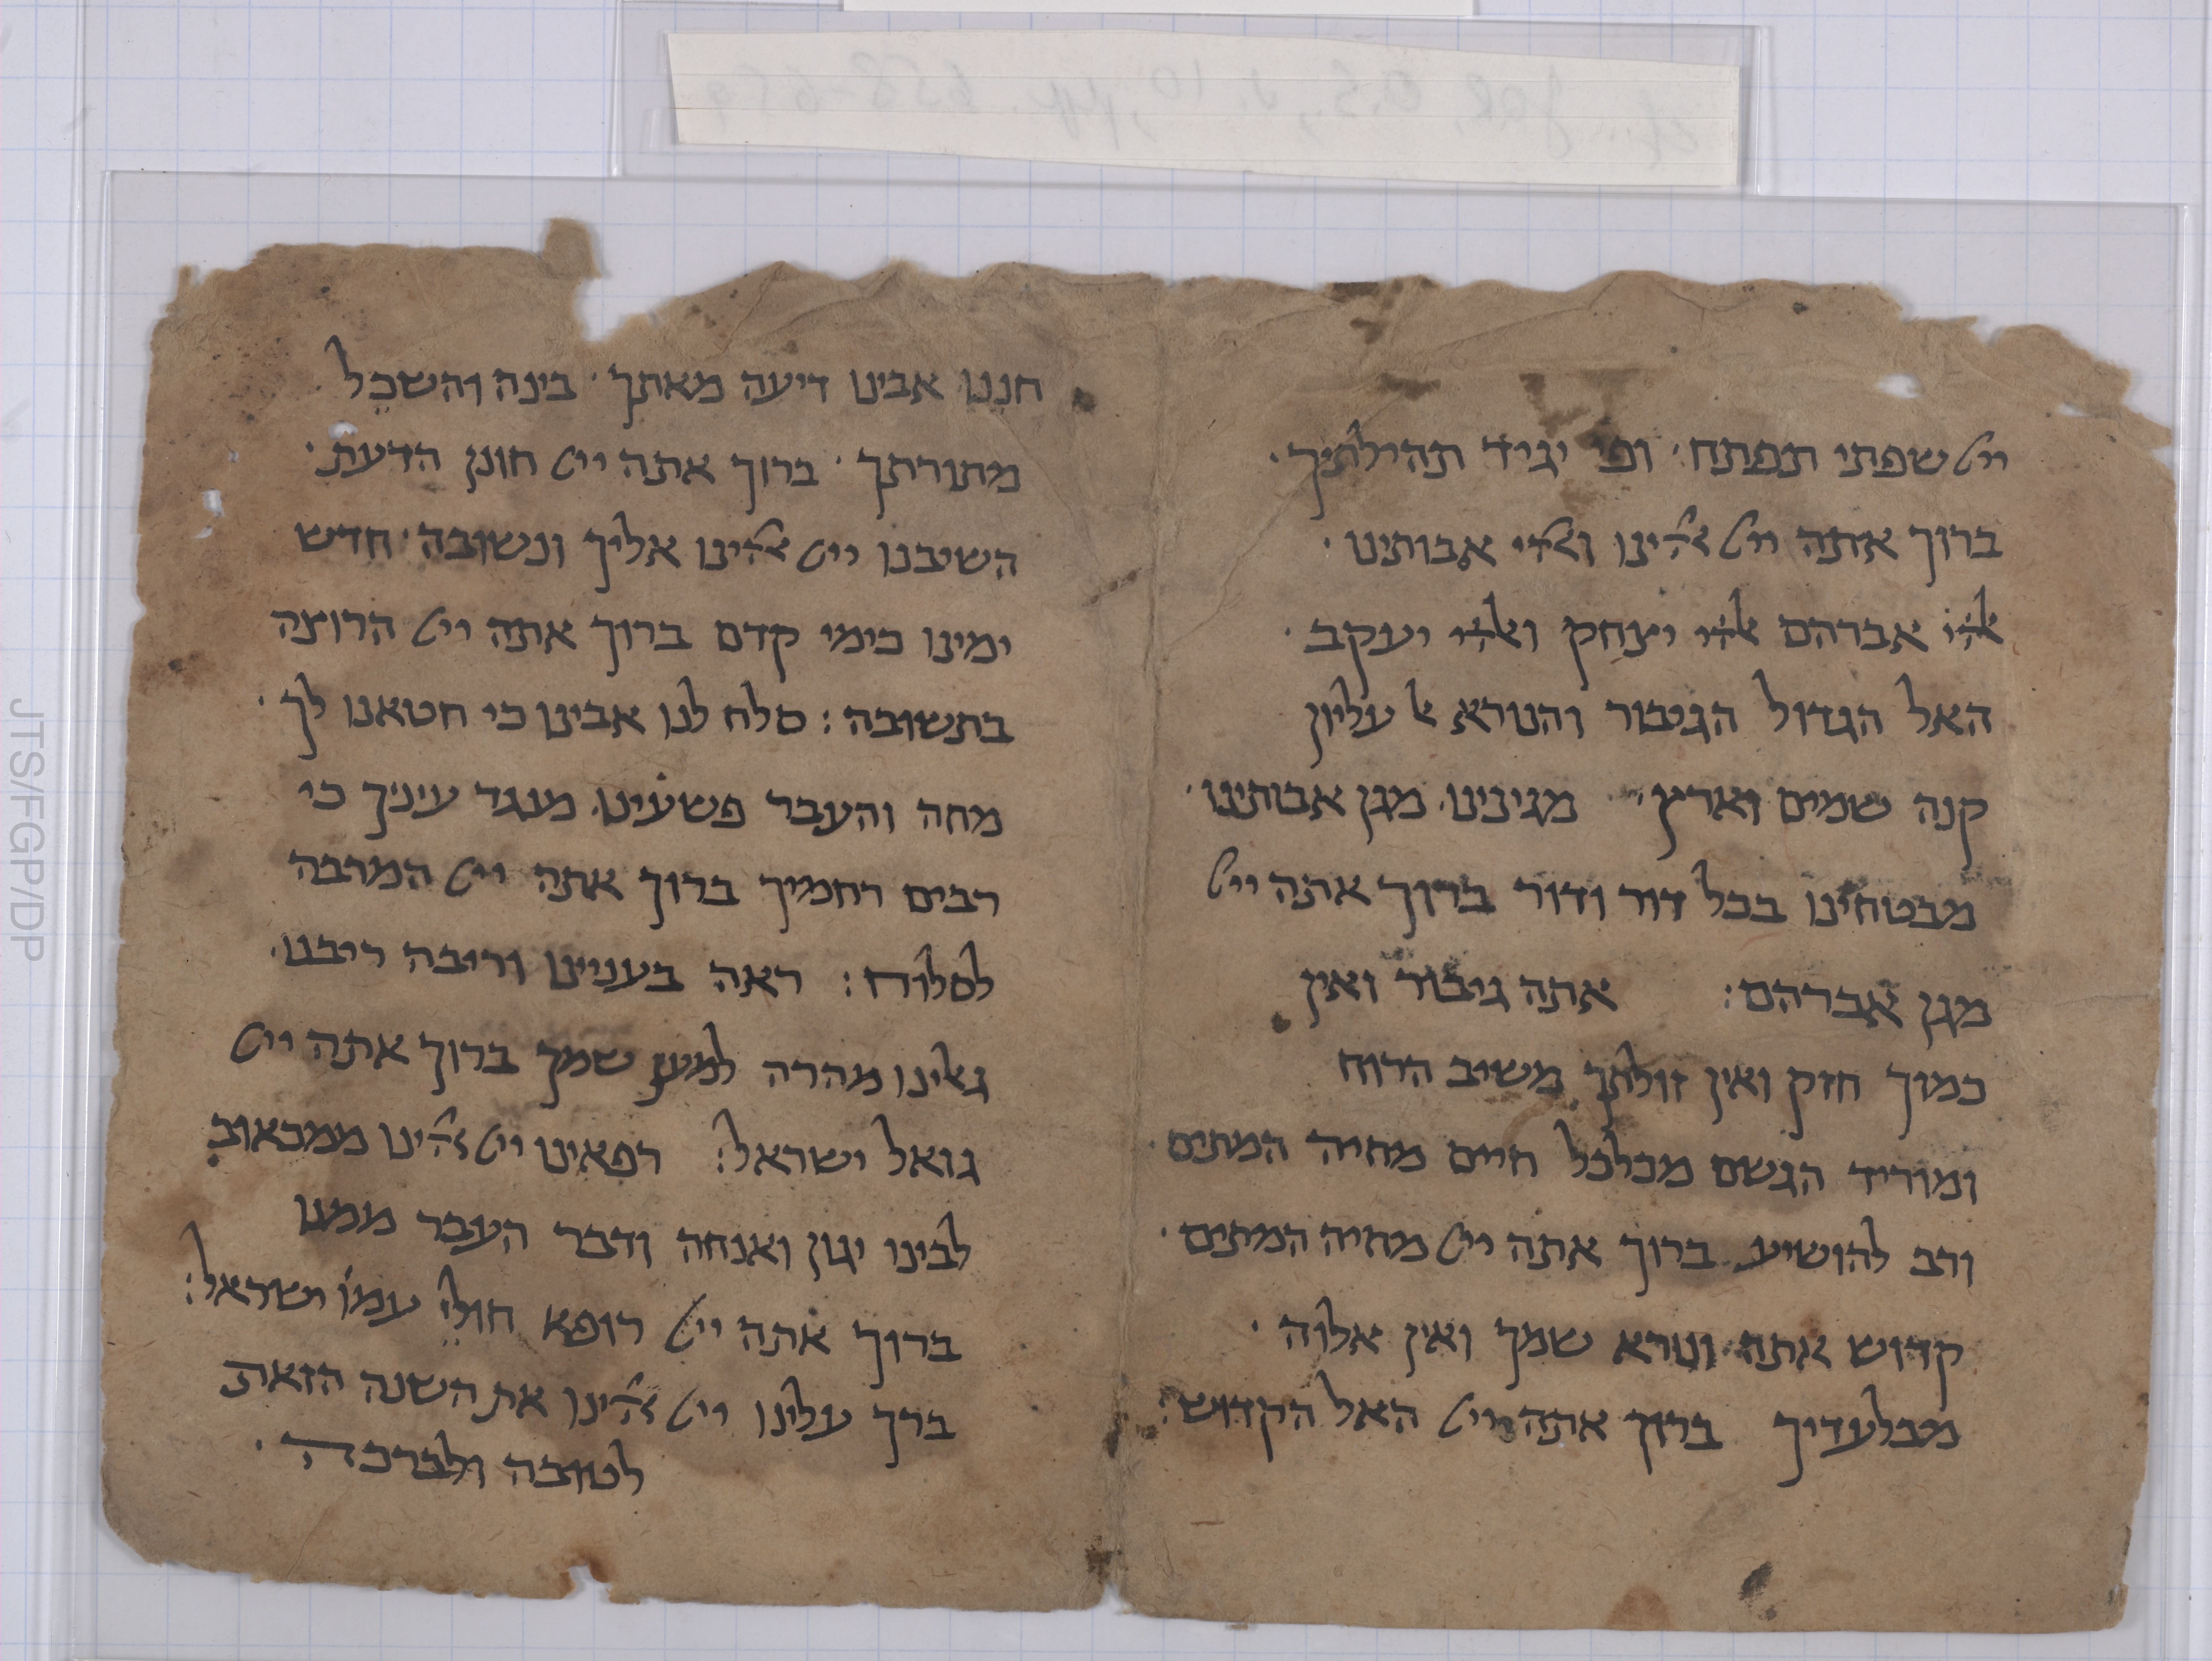 ייי שפתי תפתח · ופי יגיד תהילתיך ·
ברוך אתה ייי אלהינו ואלהי אבותינו ·
אלהי אברהם אלהי יצחק ואלהי יעקב ·
האל הגדול הגיבור והנורא אל עליון
קנה שמים וארץ · מגינינו מגן אבותינו ·
מבטחינו בכל דור ודור ברוך אתה ייי
מגן אברהם : אתה גיבור ואין
כמוך חזק ואין זולתך משיב הרוח
ומוריד הגשם מכלכל חיים מחיה המתים ·
ורב להושיע ברוך אתה ייי מחיה המתים ·
קדוש אתה ונורא שמך ואין אלוה ·
מבלעדיך ברוך אתה ייי האל הקדוש :
חננו אבינו דיעה מאתך · בינה והשכל
מתורתך · ברוך אתה ייי חונן הדעת ·
השיבנו ייי אלהינו אליך ונשובה · חדש
ימינו כימי קדם ברוך אתה ייי הרוצה
בתשובה : סלח לנו אבינו כי חטאנו לך ·
מחה והעבר פשעינו מנגד עיניך כי
רבים רחמיך ברוך אתה ייי המרבה
לסלוח : ראה בענינו וריבה ריבנו ·
גאלינו מהרה למען שמך ברוך אתה ייי
גואל ישראל : רפאינו ייי אלהינו ממכאוב
לבינו יגון ואנחה ודבר העבר ממנו
ברוך אתה ייי רופא חולי עמו ישראל :
ברך עלינו ייי אלהינו את השנה הזאת
לטובה ולברכה ·
JTS/FGP/DP